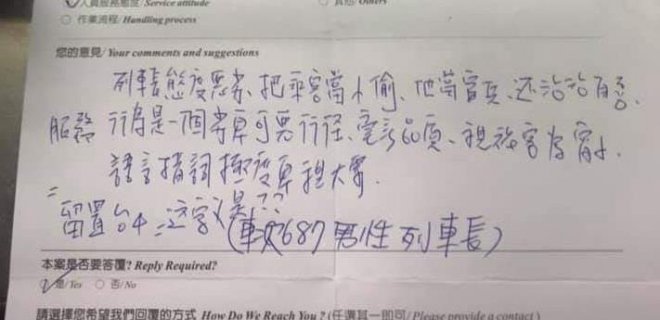 人員服務態度/Service attitude ○ 其他/Others
○ 作業流程/Handling process
您的意見/Your comments and suggestions
列車長態度惡劣、把乘客當小偷、他當官兵、还沾沾自喜
服務行為是一個劣卑可惡行径、毫無品質、視旅客為宵小、
語言措詞極度卑
留置台4=這字义是??
(車次687男性列車長)
本案是否要答覆?Reply Required?
是/Yes ○ 否/No
請選擇您希望我們回覆的方式 How Do We Reach You?(任選其一即可/Please provide a contact)